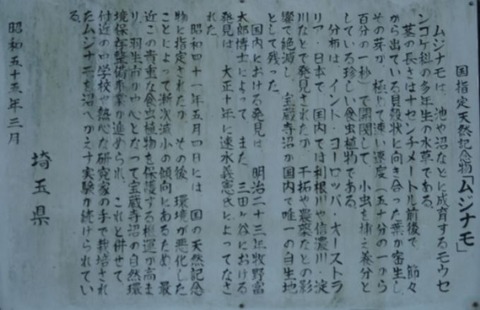 国指定天然記念物「ムジナモ」
ムジナモは、池や沼などに成育するモウセ
ンゴケ科の多年生の水草である。
茎の長さは十センチメートル前後で、節々
から出ている貝殻状に向き合った葉が密生し、
その芽が、極して速い速度（五十分の一から
百分の一秒）で開閉して小虫を捕え養分と
している珍しい食虫植物である。
分布は、イント・ヨーロッパ・オーストラ
リア・日本で、国内では利根川や信濃川・淀
川などで発見されたが、干拓や農薬などの影
響で絶滅し、宝蔵寺沼が国内で唯一の自生地
として残った。
国内における発見は、明治二十三年牧野富
太郎博士によって、また、三田ヶ谷における
発見は、大正十年に速水義憲氏によってなさ
れた。
昭和四十一年五月四日には、国の天然記念
物に指定されたが、その後、環境が悪化した
ことによって漸次減少の傾向にあるため、最
近この貴重な食虫植物を保護する機運が高ま
り、羽生市が中心となって宝蔵寺沼の自然環
境保存整備事業が進められ、これと併せて、
付近の中学校や熱心な研究家の手で栽培され
たムジナモを沼へかえす実験が続けられてい
る。
昭和五十五年三月
埼玉県